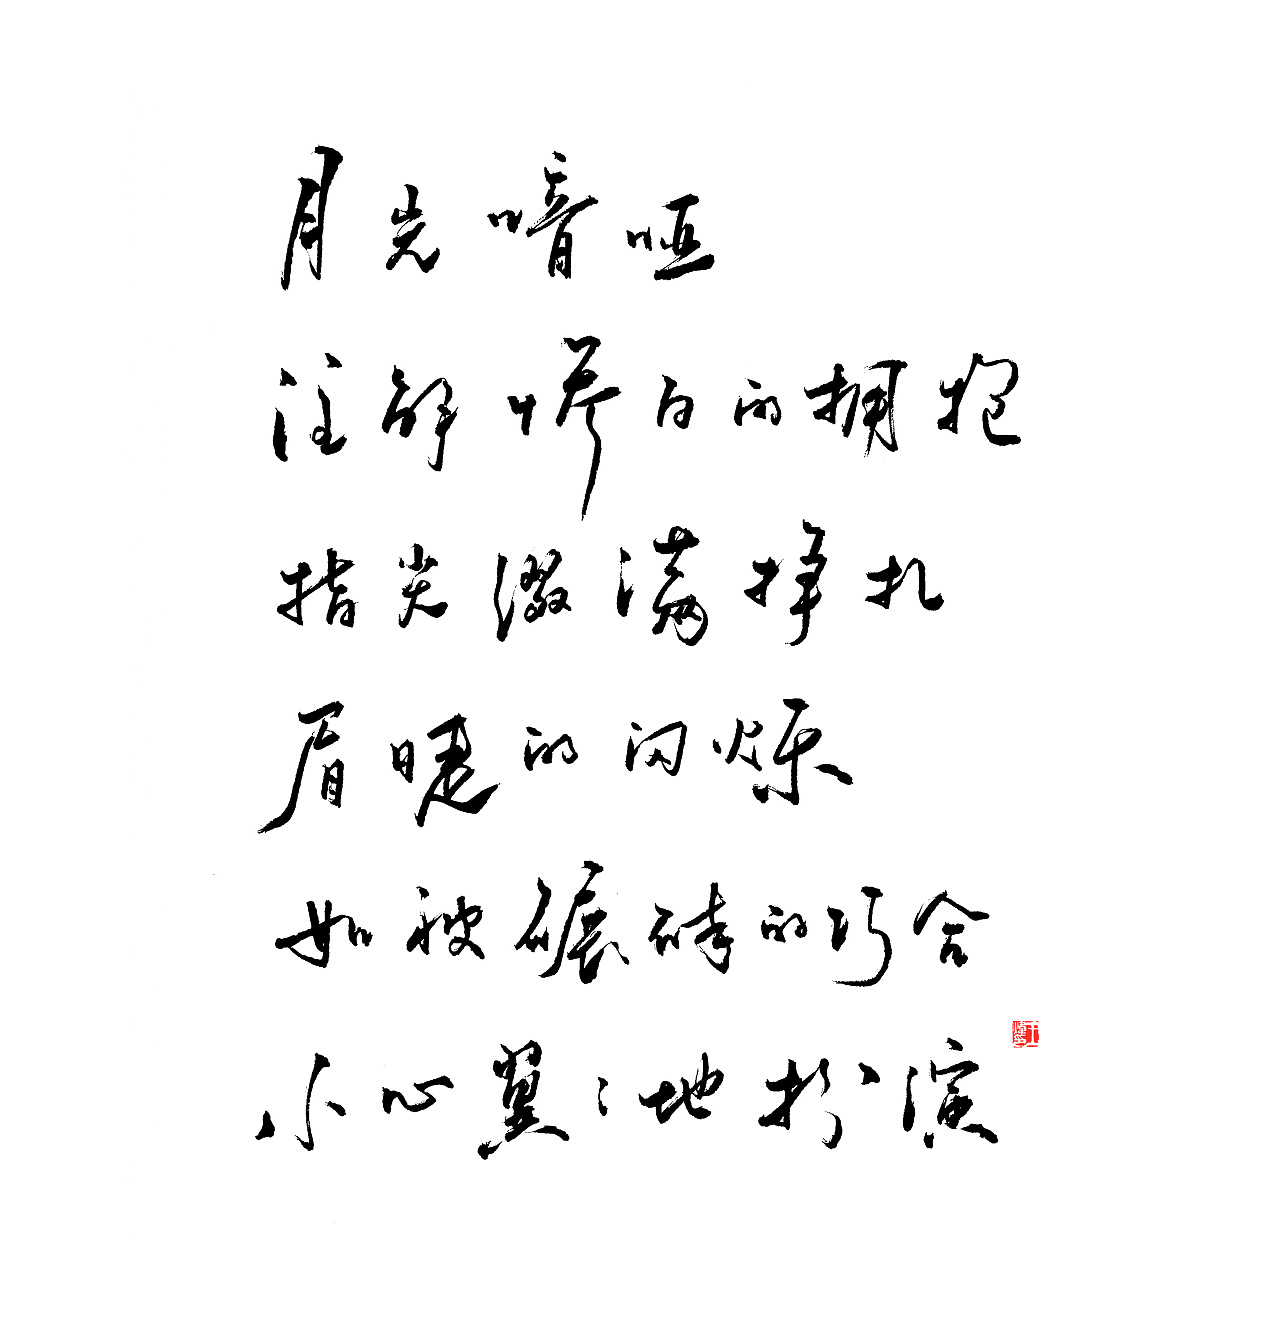 月光喑哑
注解惨白的拥抱
指尖缀满挣扎
眉睫的闪烁
如被碾碎的巧合
小心翼翼地扮演